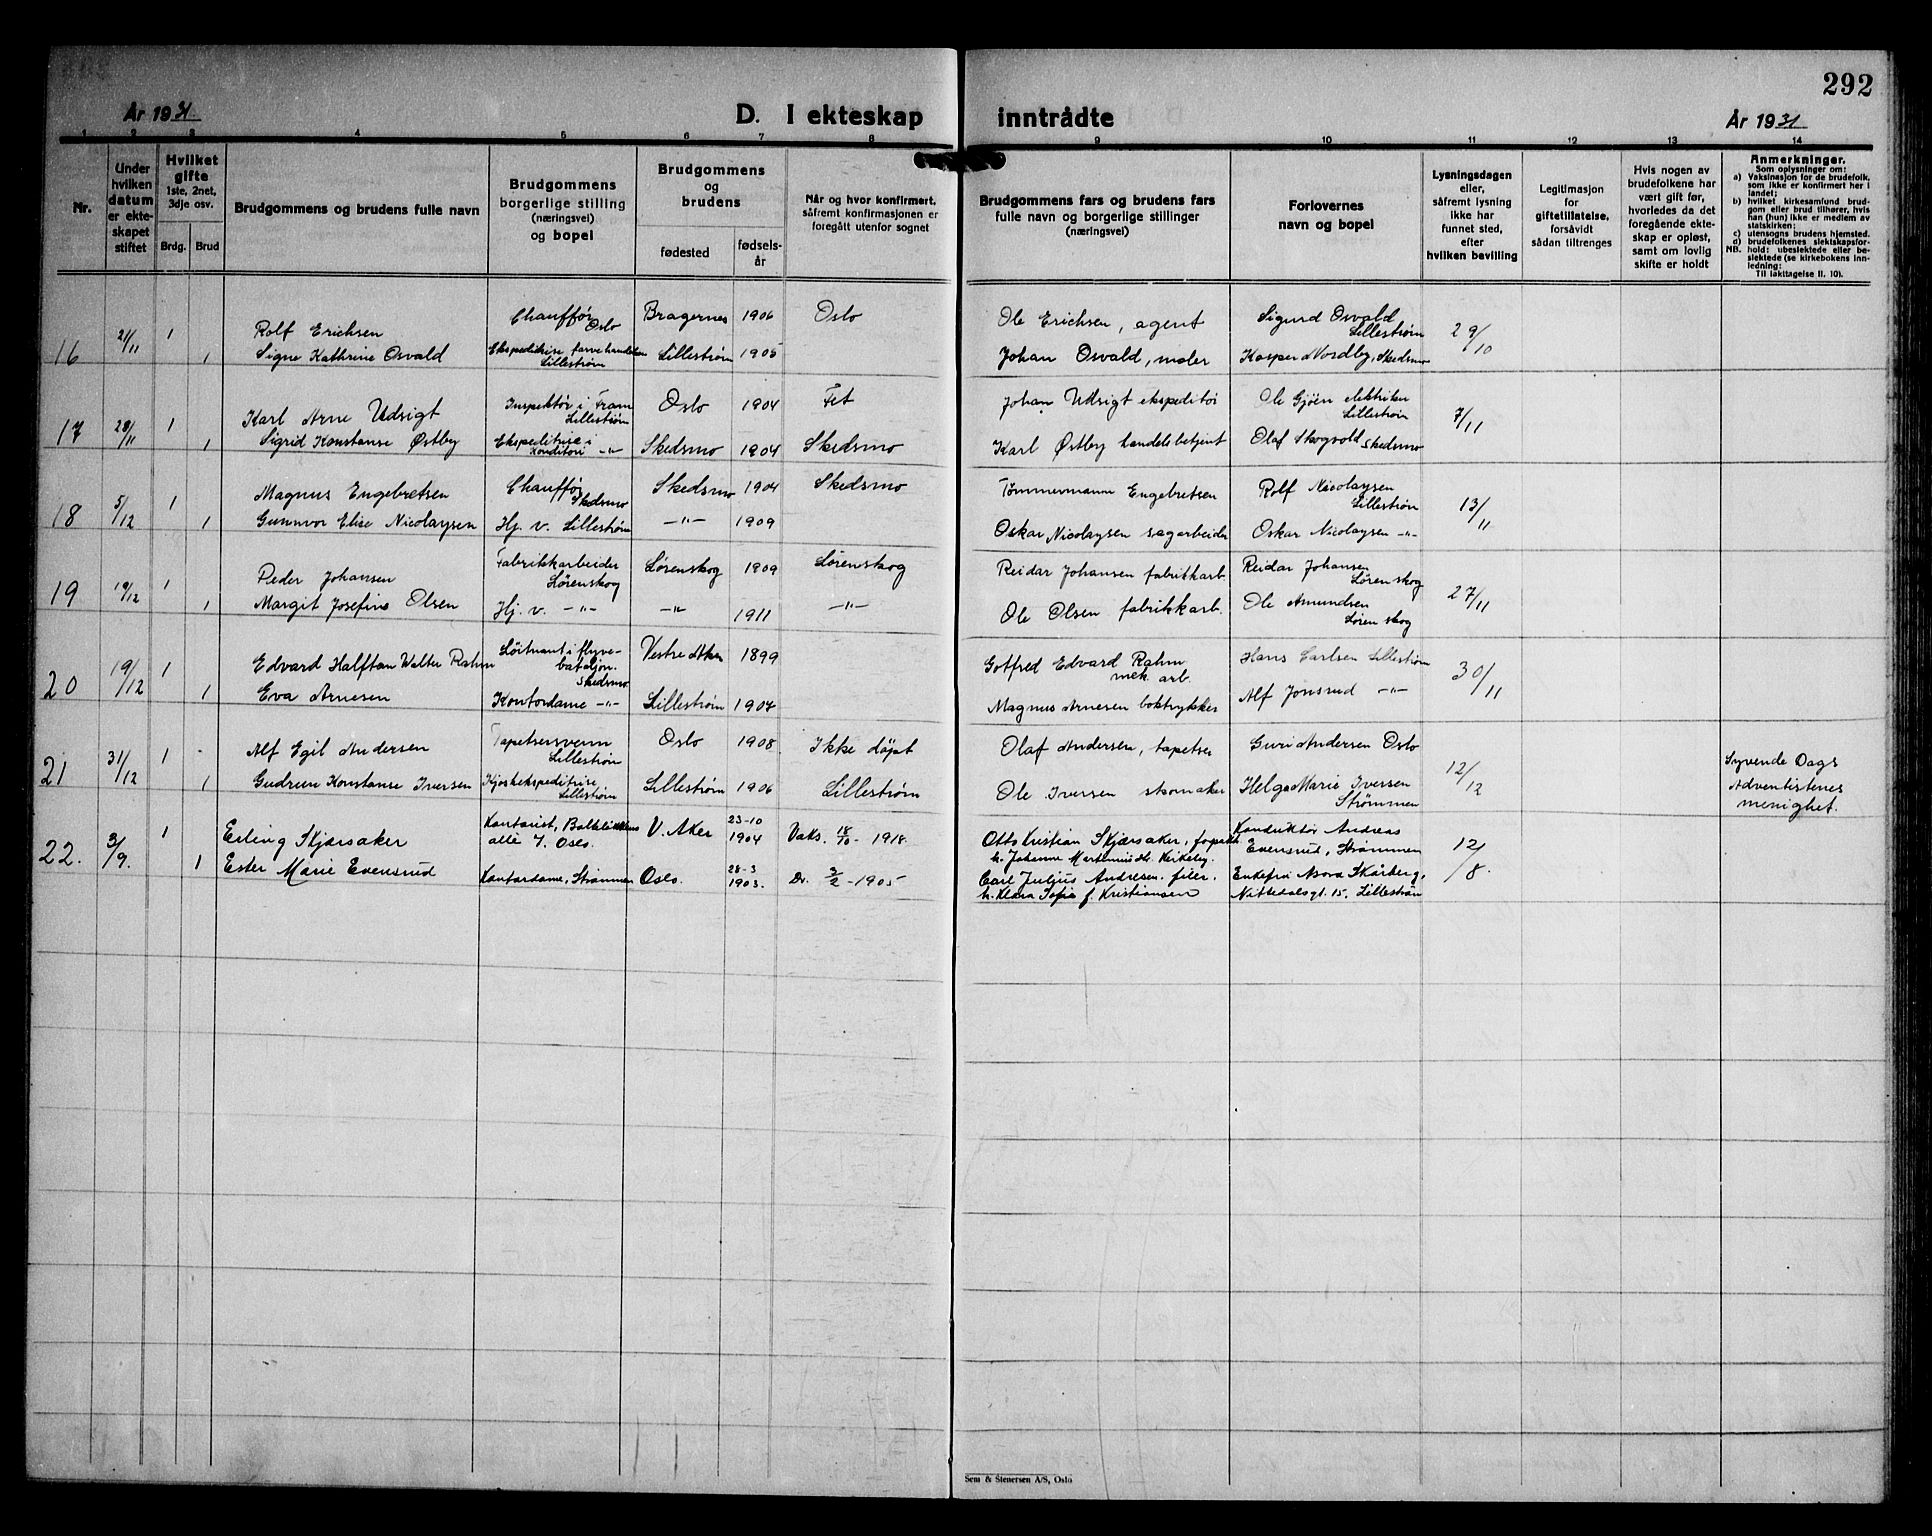 292
År 1931.
D. I ekteskap inntrådte
År 1931
1 2 3 4 5 6 7 8 9 10 11 12 13 14
Nr.
Under hvilken datum er ekteskapet stiftet
Hvilket gifte 1ste, 2net, 3dje osv.
Brdg. Brud
Brudgommens og brudens fulle navn
Brudgommens borgerlige stilling (næringsvei) og bopel
Brudgommens og brudens
fødested
fødselsår
Når og hvor konfirmert, såfremt konfirmasjonen er foregått utenfor sognet
Brudgommens fars og brudens fars fulle navn og borgerlige stillinger (næringsvei)
Forlovernes navn og bopel
Lysningsdagen eller, såfremt lysning ikke har funnet sted, efter hvilken bevilling
Legitimasjon for giftetillatelse, forsåvidt sådan tiltrenges
Hvis nogen av brudefolkene har vært gift før, hvorledes da det foregående ekteskap er opløst, samt om lovlig skifte er holdt
Anmerkninger.
Som oplysninger om:
a) Vaksinasjon for de brudefolk, som ikke er konfirmert her i landet;
b) hvilket kirkesamfund brudgom eller brud tilhører, hvis han (hun) ikke er medlem av statskirken;
c) utensogns brudens hjemsted.
d) brudefolkenes slektskapsforhold: ubeslektede eller beslektede (se kirkebokens innledning:
NB.
Til iakttagelse II. 10).
16 21/11 1 Rolf Erichsen Chauffør Oslo Bragernes 1906 Oslo Ole Erichsen, agent Sigurd Osvald Lillestrøm 29/10
1 Signe Kathrine Osvald Ekspeditrise farvehandelen Lillestrøm Lillestrøm 1905 Johan Osvald, maler Kasper Nordby, Skedsmo
17 28/11 1 Karl Arne Udsigt Inspektør i Fram Lillestrøm Oslo 1904 Fet Johan Udsigt ekspeditør Ole Gjøen elektriker Lillestrøm 7/11
1 Sigrid Konstanse Østby Ekspeditrise i konditori -"- Skedsmo 1904 Skedsmo Karl Østby handelsbetjent Olaf Skogvold Skedsmo
18 5/12 1 Magnus Engebretsen Chauffør Skedsmo Skedsmo 1904 Skedsmo Tømmermann Engebretsen Rolf Nicolaysen Lillestrøm 13/11
1 Gunnvor Elise Nicolaysen Hj. v. Lillestrøm -"- 1909 Oskar Nicolaysen sagarbeider Oskar Nicolaysen -"-
19 19/12 1 Peder Johansen Fabrikkarbeider Lørenskog Lørenskog 1909 Lørenskog Reidar Johansen fabrikkarb. Reidar Johansen Lørenskog 27/11
1 Margit Josefine Olsen Hj. v. -"- -"- 1911 -"- Ole Olsen fabrikkarb. Ole Amundsen Lørenskog
20 19/12 1 Edvard Halftan Walter Rahm Løitnant i flyvebataljon. Skedsmo Vestre Aker 1899 Gotfred Edvard Rahm mek. arb. Hans Carlsen Lillestrøm 30/11
1 Eva Arnesen Kontordame -"- Lillestrøm 1907 Magnus Arnesen boktrykker Alf Jonsrud -"-
21 31/12 1 Alf Egil Andersen Tapetsersvenn Lillestrøm Oslo 1908 Ikke døpt Olaf Andersen, tapetser Guri Andersen Oslo 12/12
1 Gudrun Konstanse Iversen Kjoskekspeditrise Lillestrøm Lillestrøm 1906 Lillestrøm Ole Iversen skomaker Helga Marie Iversen Strømmen
Syvende Dags Adventistenes menighet.
22. 3/9. 1 Erling Skjærsaker Kontorist, alle 7. Oslo. V. Aker 23-10 1904 Vaks. 18/10 - 1918. Otto Kristian Skjærsaker, h. Johanne Kirkeby. Konduktør Andreas Evensrud, Strømmen 12/8.
1 Ester Marie Evensrud Kontordame, Strømmen Oslo. 28-3 1903. Do. 3/2 - 1905 Carl Juljus Andresen. filer. h. Klara Sofie f. Kristiansen Enkefru Skårberg, Nittedalsgt. 15. Lillestrøm
Sem & Stenersen A/S, Oslo